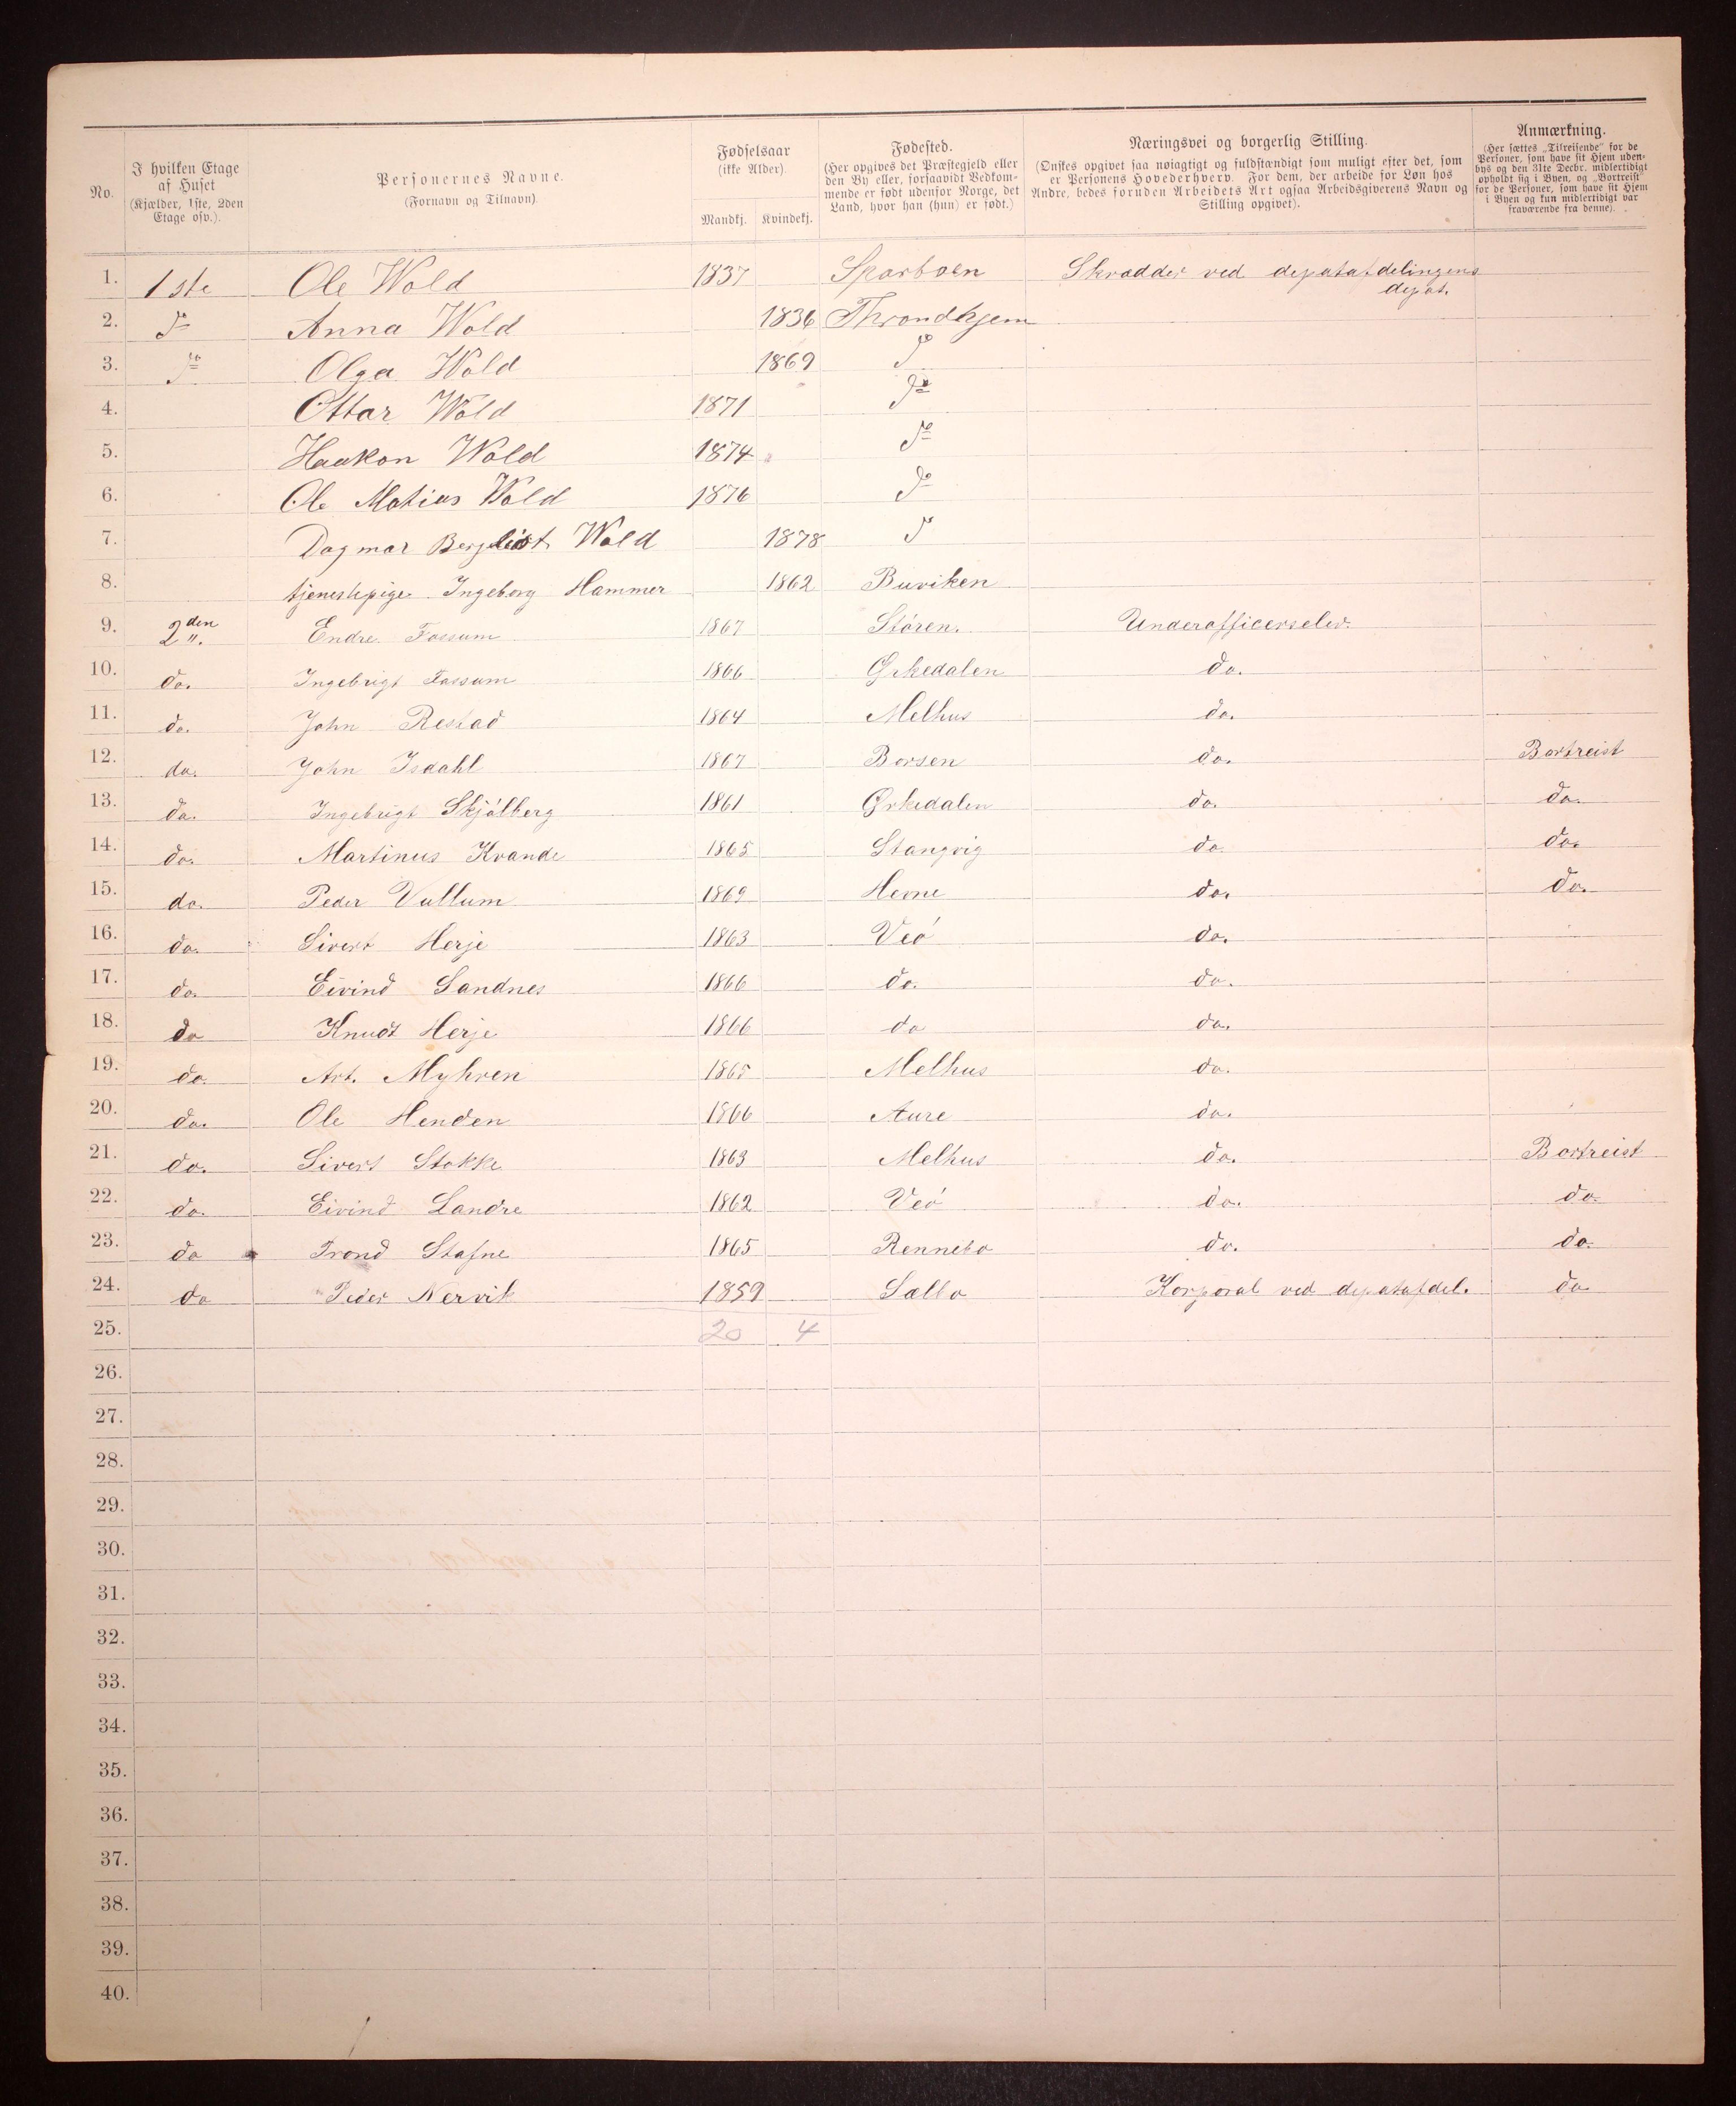 No.
I hvilken Etage af Huset (Kjælder, 1ste, 2den Etage osv.).
Personernes Navne. (Fornavn og Tilnavn)
Fødselsaar (ikke Alder). Mandkj. Kvindekj.
Fødested. (Her opgives det Præstegjeld eller den By eller, forsaavidt Vedkommende er født udenfor Norge, det Land, hvor han (hun) er født.)
Næringsvei og borgerlig Stilling. (Ønskes opgivet saa nøiagtigt og fuldstændigt som muligt efter det, som er Personens Hovederhverv. For dem, der arbeide for Løn hos Andre, bedes foruden Arbeidets Art ogsaa Arbeidsgiverens Navn og Stilling opgivet).
Anmærkning. (Her sættes „Tilreisende" for de Personer, som have sit Hjem udenbys og den 31te Decbr. midlertidigt opholdt sig i Byen, og „Bortreist" for de Personer, som have sit Hjem i Byen og kun midlertidigt var fraværende fra denne).
1. 1ste Ole Wold 1837 Sparboen Skrædder ved depotafdelingens depot.
2. do Anna Wold 1836 Throndhjem
3. do Olga Wold 1869 do
4. Ottar Wold 1871 do
5. Haakon Wold 1874 do
6. Ole Matias Wold 1876 do
7. Dagmar Bergliot Wold 1878 do
8. tjenestepige Ingeborg Hammer 1862 Buviken
9. 2den ". Endre Fossum 1867 Støren. Underofficerselev.
10. do. Ingebrigt Fossum 1866 Ørkedalen do.
11. do. John Restad 1864 Melhus do.
12. do. John Isdahl 1867 Borsen do. Bortreist
13. do. Ingebrigt Skjølberg 1861 Ørkedalen do. do.
14. do. Martinus Kvande 1865 Stangvig do. do.
15. do. Peder Vullum 1869 Hevne do. do.
16. do. Sivert Herje 1863 Veø do.
17. do. Eivind Sandnes 1866 do. do.
18. do Knudt Herje 1866 do do.
19. do. Art. Myhren 1865 Melhus do.
20. do. Ole Henden 1866 Aure do.
21. do. Sivert Stokke 1863 Melhus do. Bortreist
22. do. Eivind Landre 1862 Veø do. do.
23. do Trond Stafne 1865 Rennebo do. do.
24. do Peder Nervik 1859 Sælbo Korporal ved depotafdel. do
25. 20 4
26.
27.
28.
29.
30.
31.
32.
33.
34.
35.
36.
37.
38.
39.
40.